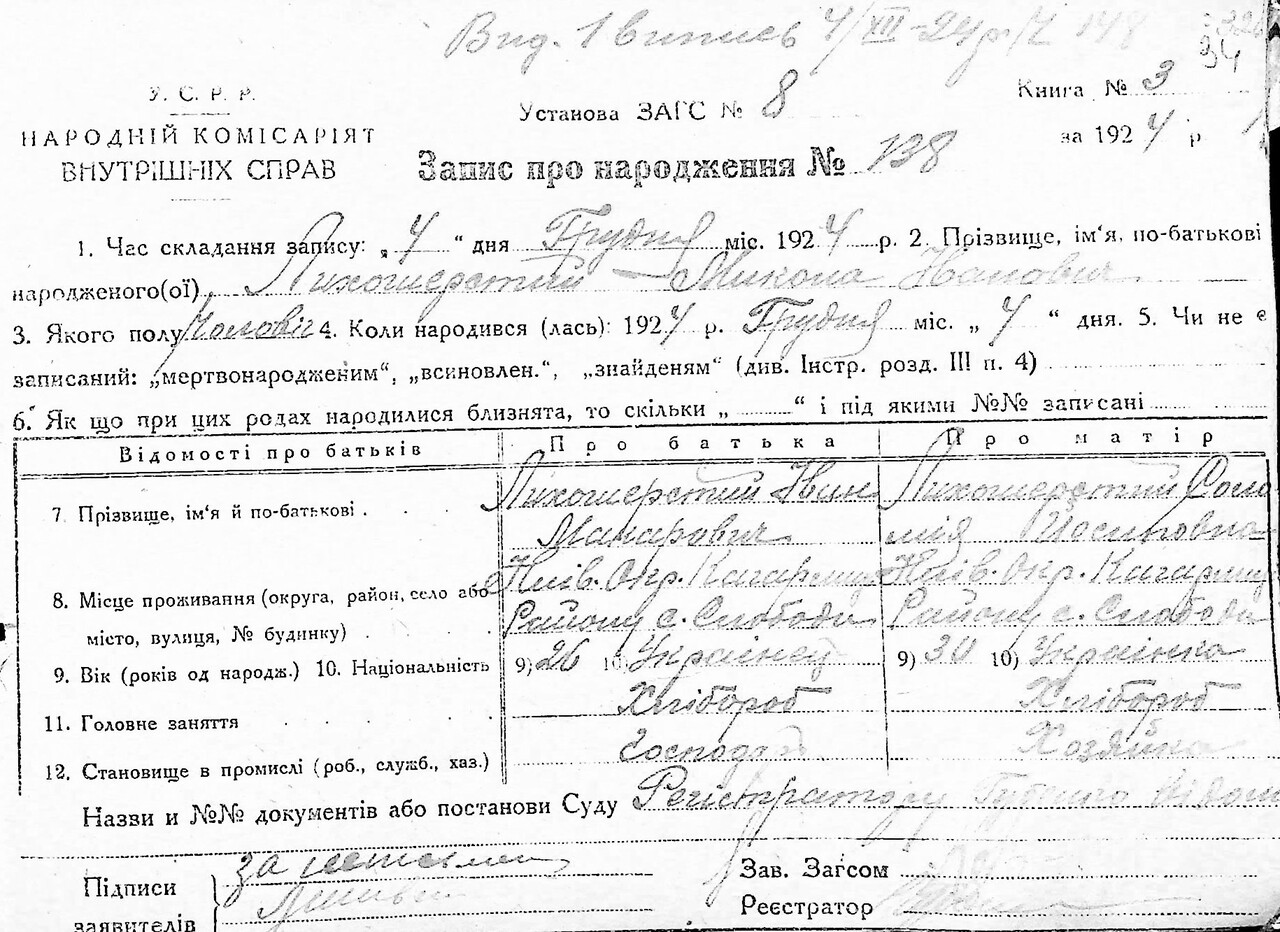 Вид. 1 випись 4/XII-24 р. 148
34
У. С. Р. Р.
НАРОДНІЙ КОМІСАРІЯТ
ВНУТРІШНІХ СПРАВ
Установа ЗАГС № 8
Книга № 3
за 1924 р.
Запис про народження № 138
1. Час складання запису: „4“ дня Грудня міс. 1924 р. 2. Прізвище, ім'я, по-батькові
народженого(ої) Лихошерстий Микола Іванович
3. Якого полу Чоловіч 4. Коли народився (лась): 1924 р. Грудня міс. „4“ дня. 5. Чи не є
записаний: „мертвонародженим“, „всиновлен.“, „знайденям“ (див. Інстр. розд. III п. 4)
6. Як що при цих родах народилися близнята, то скільки „ “ і під якими №№ записані
Відомості про батьків Про батька Про матір
7 Прізвище, ім'я й по-батькові . Лихошерстий Іван Лихошерстий Соло
Макарович мія Йосиповна
8. Місце проживання (округа, район, село або Київ. Окр. Кагарлиц Київ. Окр. Кагарлиц
місто, вулиця, № будинку) . Району с. Слобода Району с. Слобода
9. Вік (років од народж.) 10. Національність 9) 26 10) Українец 9) 30 10) Українка
11. Головне заняття Хлібороб Хлібороб
12. Становище в промислі (роб., служб., хаз.) Господар Хозяйка
Назви и №№ документів або постанови Суду Регістратору
Підписи
заявителів
за
Зав. Загсом
Реєстратор